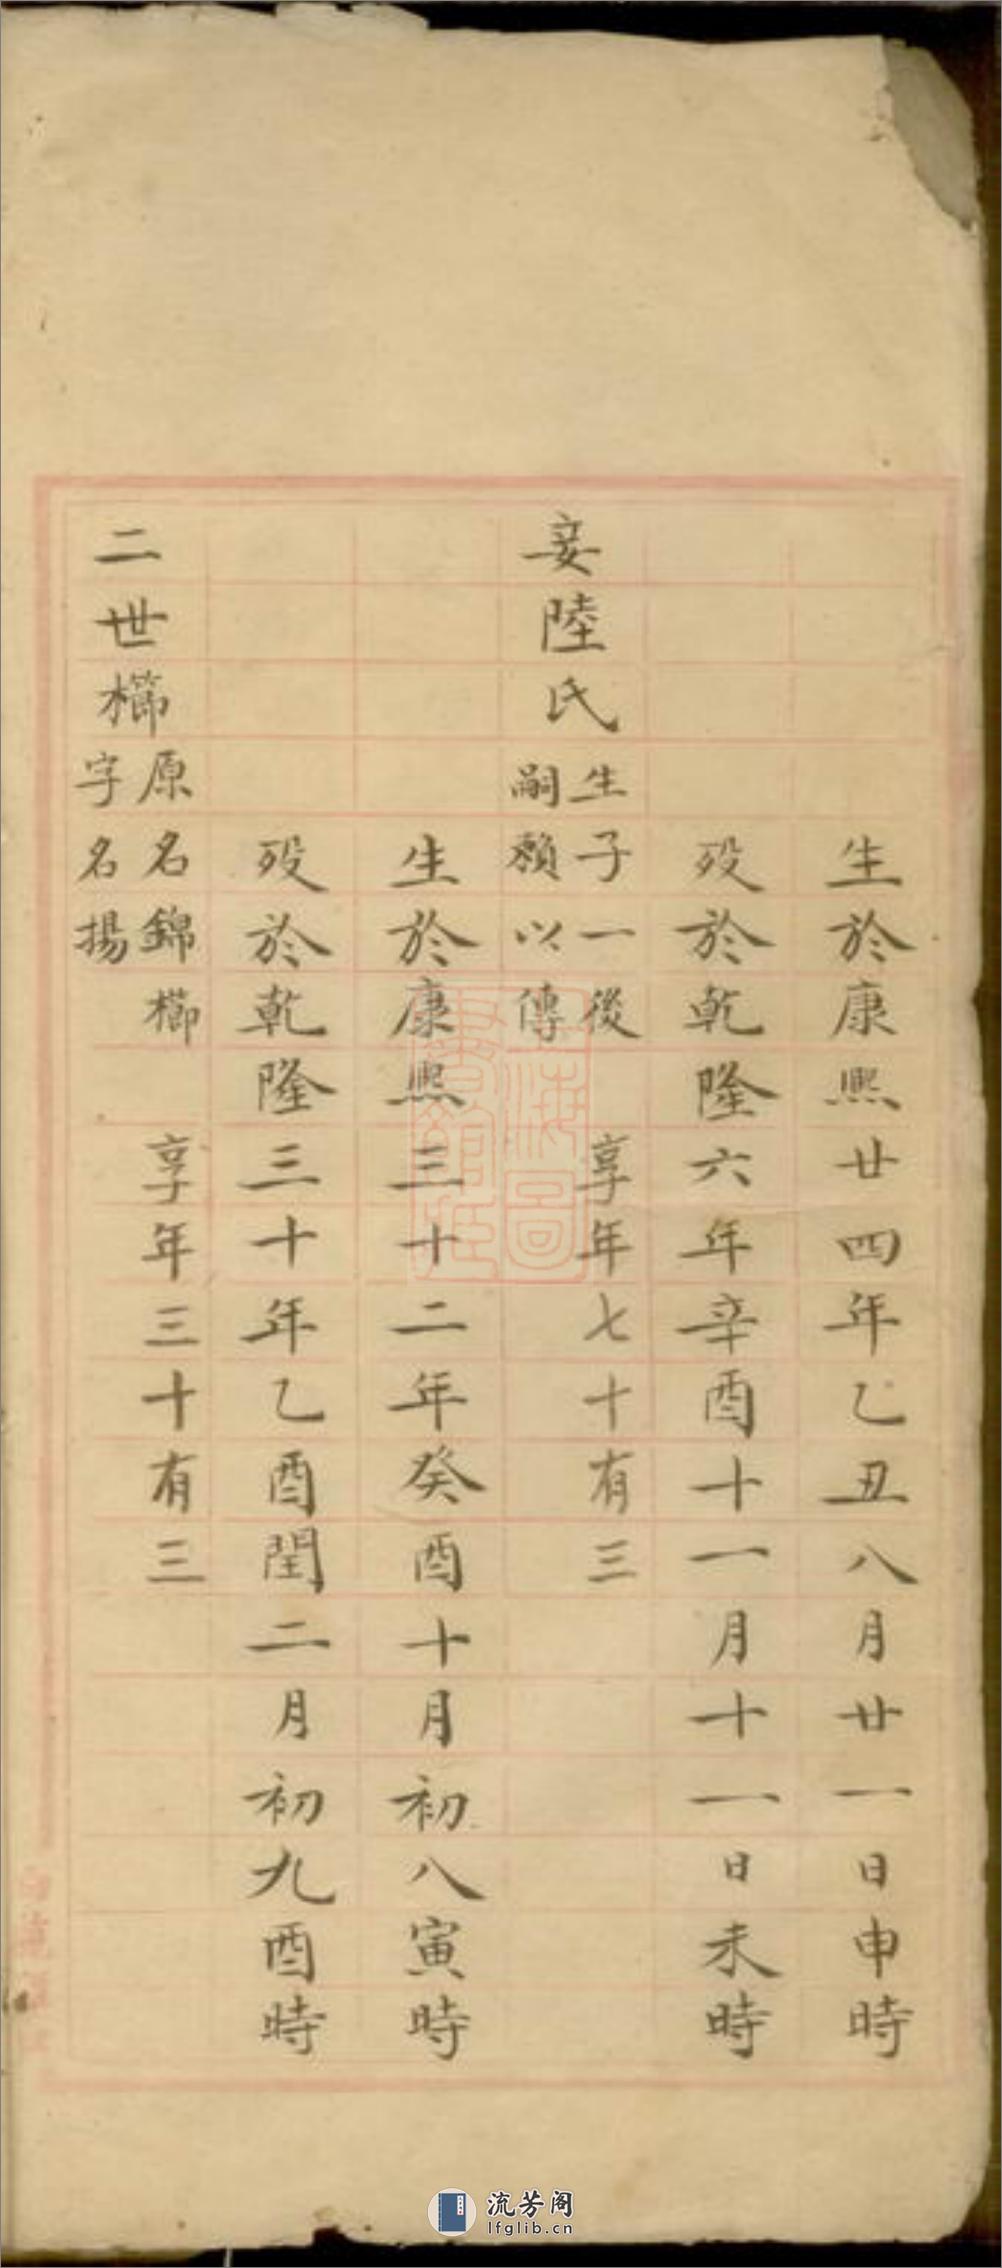 生於康熙廿四年乙丑八月廿一日申時
歿於乾隆六年辛酉十一月十一日未時
妾陸氏生子一後嗣賴以傳 享年七十有三
生於康熙三十二年癸酉十月初八寅時
歿於乾隆三十年乙酉閏二月初九酉時
二世櫛原名錦櫛字名揚 享年三十有三
流芳阁
lfglib.cn